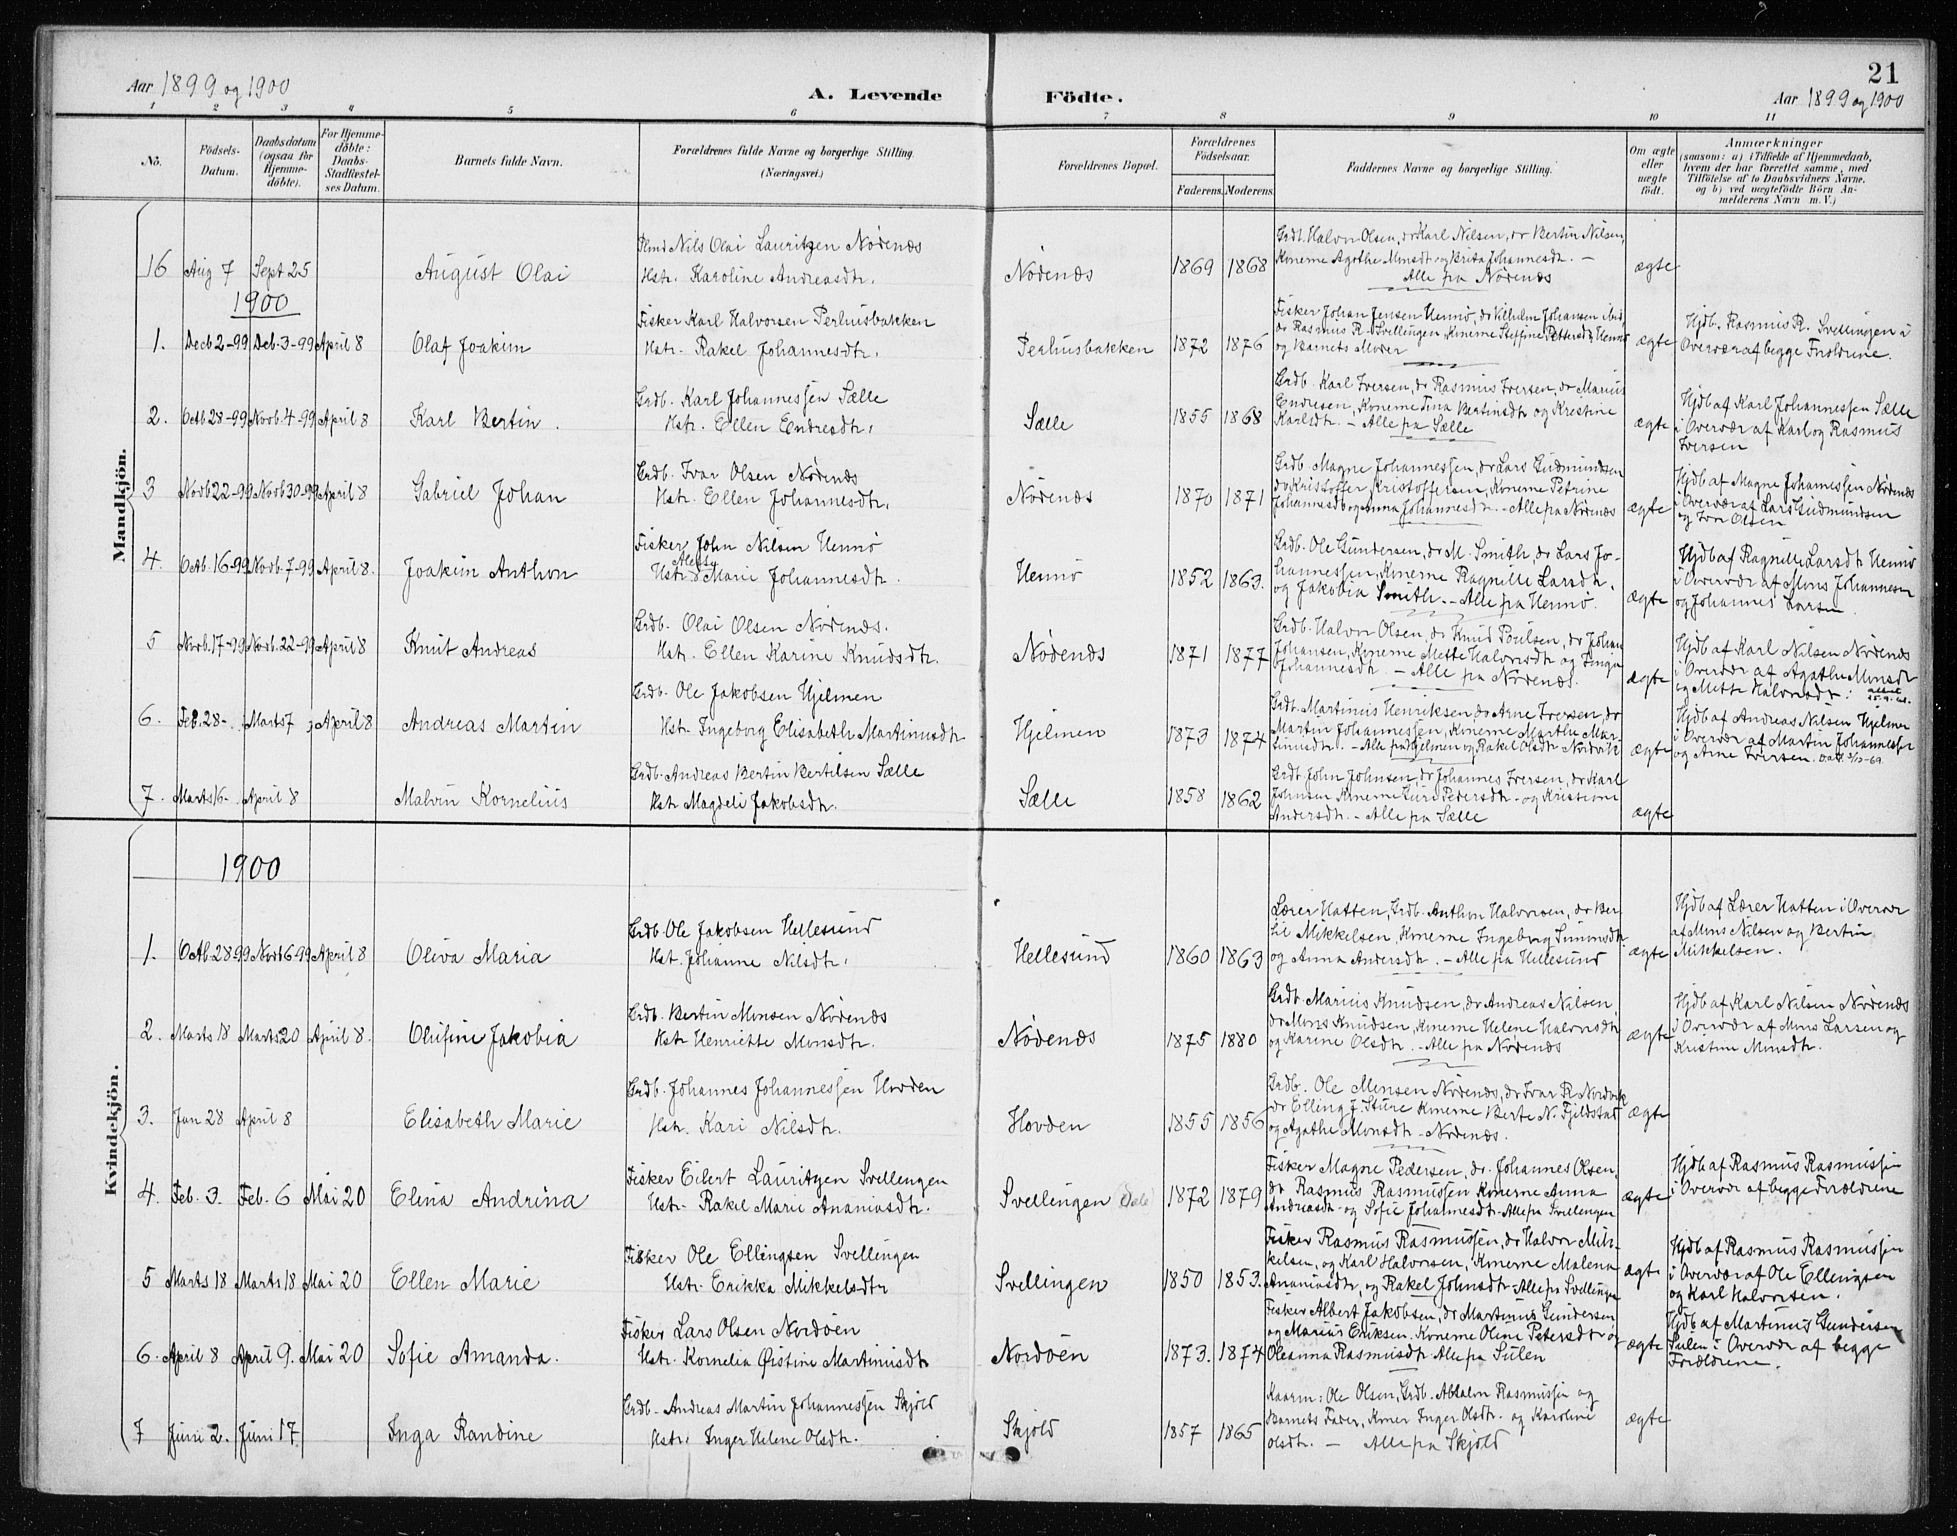 21
Aar 1899 og 1900
A. Levende
Födte.
Aar 1899 og 1900
1 2 3 4 5 6 7 8 9 10 11
No.
Födsels-
Datum.
Daabsdatum
(ogsaa for
Hjemme-
döbte).
For Hjemme-
döbte:
Daabs-
Stadfæstel-
ses Datum.
Barnets fulde Navn.
Forældrenes fulde Navne og borgerlige Stilling.
(Næringsvei.)
Forældrenes Bopæl.
Forældrenes
Födselsaar.
Faderens. Moderens.
Faddernes Navne og borgerlige Stilling.
Om ægte
eller
uægte
födt.
Anmærkninger
(saasom: a) i Tilfælde af Hjemmedaab,
hvem der har forrettet samme, med
Tilföielse af to Daabsvidners Navne,
og b) ved uægtefödte Börn An-
melderens Navn m. V.)
Mandkjön.
16 Aug 7 Sept 25
August Olai
Nils Olai Lauritzen Nødenæs
Hstr. Karoline Andreasdtr.
Nødenæs
1869 1868
Grdb. Halvor Olsen, do Karl Nilsen, do Bertin Nilsen,
Konerne Agathe Monsdt og Brita Johannesdt. –
Alle pa Nødenæs
ægte
1900
1. Decb 2-99 Deb. 3-99 April 8
Olaf Joakim
Fisker Karl Halvorsen Perhusbakken
Hstr. Rakel Johannesdtr.
Perhusbakken
1872 1876
Fisker Johan Jensen Hennø, do Vilhelm Johansen
do Rasmus R. Svellingen Konerne Steffine Pettersdt Hennø
og Barnets Moder
ægte
Hjdb. Rasmus R. Svellingen i
Overvær af begge Forældrene.
2. Octb 28-99 Novb. 4-99 April 8
Karl Bertin.
Grdb. Karl Johannessen Sælle
Hstr. Ellen Endresdtr.
Sælle
1855 1868
Grdb. Karl Iversen, do Rasmus Iversen, do Marius
Endresen, Konerne Tina Bertinsdtr og Kristine
Karlsdtr. – Alle pa Sælle
ægte
Hjdb af Karl Johannessen Sælle
i Overvær af Karl og Rasmus
Iversen
3 Novb 22-99 Novb 30-99 April 8
Gabriel Johan
Grdb. Ivar Olsen Nødenæs
Hstr. Ellen Johannesdtr.
Nødenæs
1870 1871
Grdb. Magne Johannessen, do Lars Gudmundsen
do Kristoffer Kristoffersen, Konerne Petrine
Johannesdt og Anna Johannesdt. – Alle pa Nødenæs
ægte
Hjdb af Magne Johannessen Nødenæs
i Overvær af Lars Gudmundsen
og Iver Olsen
4. Octb. 16-99 Novb. 7-99 April 8.
Joakim Anthon
Fisker John Nilsen Hennø
Hstr Marie Johannesdtr.
Hennø
1852 1863.
Grdb. Ole Gundersen, do M. Smith, do Lars Jo-
hannessen, Konerne Ragnille Larsdtr.
og Jakobia Smith. – Alle pa Hennø.
ægte
Hjdb af Ragnille Larsdt Hennø
i Overvær af Mons Johannesen
og Johannes Larsen.
5 Novb. 17-99 Novb. 22-99 April 8
Knut Andreas
Grdb. Olai Olsen Nødenæs.
Hstr. Ellen Karine Knudsdtr.
Nødenæs
1871 1877
Grdb. Halvor Olsen, do Knud Poulsen, do Johan
Johansen, Konerne Mette Halvorsdt og Inga
Johannesdt. – Alle pa Nødenæs.
ægte
Hjdb af Karl Nilsen Nødenæs
i Overvær af Agathe Monsdt
og Mette Halvorsdt.
6. Feb. 28-. Marts 7 April 8
Andreas Martin
Grdb. Ole Jakobsen Hjelmen
Hstr. Ingeborg Elisabeth Martinusdtr
Hjelmen
1873 1874
Grdb. Martinus Henriksen, do Arne Iversen, do
Martin Johannessen, Konerne Marthe Mar-
tinusdt. – Alle pa Hjelmen og Rakel Olsdt Nordvik
ægte
Hjdb af Andreas Nilsen Hjelmen
i Overvær af Martin Johannessen
og Arne Iversen.
7. Marts 16-. April 8
Malvin Kornelius
Grdb. Andreas Bertin Bertilsen Sælle
Hstr Magdeli Jakobsdtr.
Sælle
1858 1862
Grdb. John Johnsen, do Johannes Iversen, do Karl
Johnsen Konerne Guri Pedersdt. og Kristiane
Andersdt. – Alle pa Sælle
ægte
Kvindekjön.
1900
1. Octb. 28-99 Novb 6-99 April 8
Oliva Maria
Grdb. Ole Jakobsen Hellesund
Hst. Johanne Nilsdtr.
Hellesund
1860 1863
Lærer Hatten, Grdb. Anthon Halvorsen, do Ber-
til Mikkelsen, Konerne Ingeborg Simonsdt
og Anna Andersdt. – Alle pa Hellesund
ægte
Hjdb af Lærer Hatten i Overvær
af Mons Nilsen og Bertin
Mikkelsen.
2. Marts 18 Marts 20 April 8.
Olufine Jakobia
Grdb. Bertin Monsen Nødenæs
Hstr Henriette Monsdtr.
Nødenæs
1875 1880
Grdb. Marius Knudsen, do Andreas Nilsen
do Mons Knudsen, Konerne Helene Halvorsdt
og Karine Olsdtr. – Alle pa Nødenæs
ægte
Hjdb af Karl Nilsen Nødenæs
i Overvær af Mons Larsen og
Kristine Monsdtr.
3. Jan 28 April 8
Elisabeth Marie
Grdb. Johannes Johannessen Hovden
Hstr. Kari Nilsdtr.
Hovden
1855 1856
Grdb. Ole Monsen Nødenæs, do Ivar R. Nordvik
do Elling J. Sture Konerne Berte N. Fjeldstad
og Agathe Monsdt – Nødenæs.
ægte
4. Feb. 3. Feb. 6 Mai 20
Elina Andrina
Fisker Eilert Lauritzen Svellingen
Hstr. Rakel Marie Ananiasdtr.
Svellingen (Dale)
1872 1879
Fisker Magne Pedersen, do. Johannes Olsen,
do Rasmus Rasmussen Konerne Anna
Andreasdt. og Sofie Johannesdt. Alle pa Svellingen
ægte
Hjdb af Rasmus Rasmussen
i Overvær af begge Forældrene
5 Marts 18 Marts 18 Mai 20
Ellen Marie
Fisker Ole Ellingsen Svellingen
Hstr. Erikka Mikkelsdtr
Svellingen
1850 1853.
Fisker Rasmus Rasmussen, do Halvor Mik-
kelsen, og Karl Halvorsen, Konerne Malena
Ananiasdtr, og Rakel Johnsdt – Alle pa Svellingen
ægte
Hjdb af Rasmus Rasmussen
i Overvær af Ole Ellingsen
og Karl Halvorsen.
6. April 8 April 9. Mai 20
Sofie Amanda.
Fisker Lars Olsen Nordøen
Hstr. Kornelia Østine Martinusdtr
Nordøen
1873. 1874
Fisker Albert Jakobsen, do Martinus Gundersen
og Marius Eriksen. Konerne Oline Petersdt og
Oleanna Rasmusdt. Alle pa Sulen
ægte
Hjdb af Martinus Gundersen
Sulen i Overvær af begge
Forældrene.
7 Juni 2. Juni 17
Inga Randine
Grdb. Andreas Martin Johannessen Skjold
Hstr. Inger Helene Olsdtr.
Skjold
1857 1865
Kaarm: Ole Olsen, Grdb. Absalon Rasmussen og
Barnets Fader, Koner Inger Olsdtr. og Karoline
Olsdtr. – Alle pa Skjold
ægte